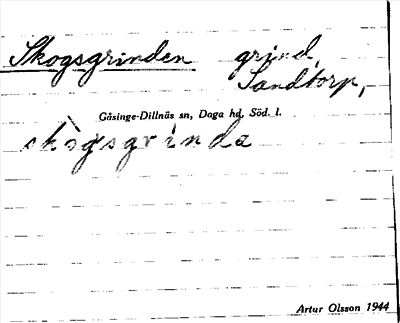 Skogsgrinden grind,
Sandtorp,
Gåsinge-Dillnäs sn, Daga hd, Söd. l.
skògsgrinda
Artur Olsson 1944